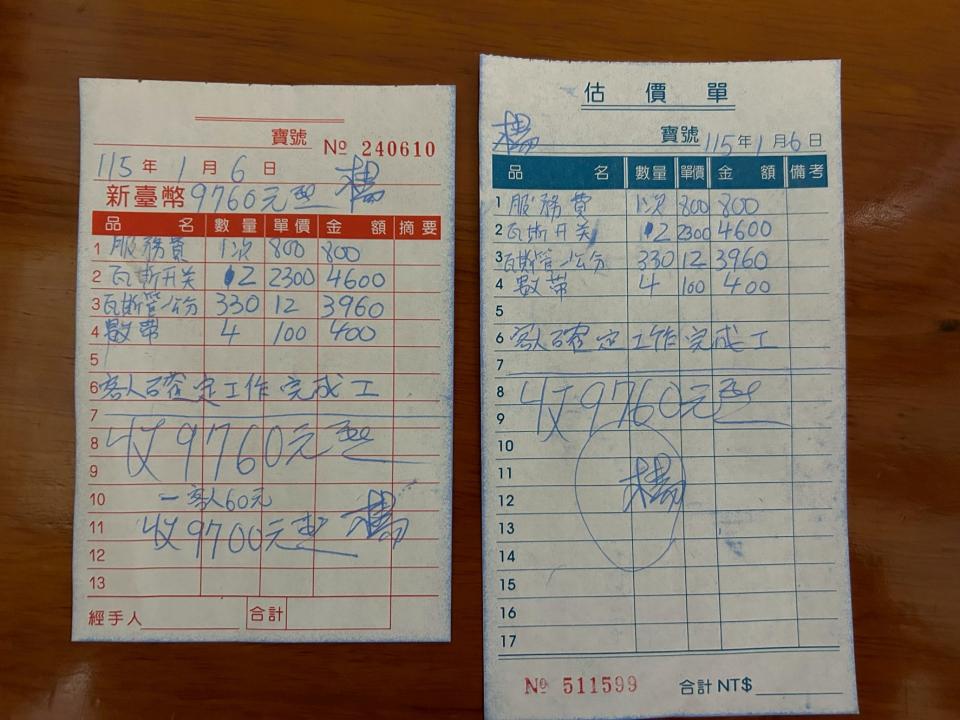 寶號 № 240610
115年1月6日 楊
新臺幣9760元
品名 數量 單價 金額 摘要
1 服務費 1次 800 800
2 瓦斯开关 2 2300 4600
3 瓦斯管/公分 330 12 3960
4 數帶 4 100 400
5
6 客人確定工作完成工
7
8 收9760元
9
10 一客人60元
11 收9700元 楊
12
13
經手人 合計
估價單
楊 寶號 115年1月6日
品名 數量 單價 金額 備考
1 服務費 1次 800 800
2 瓦斯开关 2 2300 4600
3 瓦斯管/公分 330 12 3960
4 數帶 4 100 400
5
6 客人確定工作完成工
7
8 收9760元
9
10
11
12 楊
13
14
15
16
17
№ 511599 合計 NT$